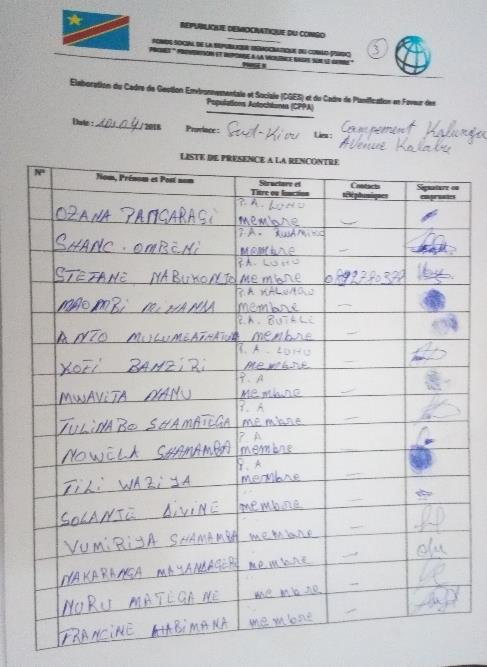 REPUBLIQUE DEMOCRATIQUE DU CONGO
FONDS SOCIAL DE LA REPUBLIQUE DEMOCRATIQUE DU CONGO (FSRDC)
PROJET " PREVENTION ET REPONSE A LA VIOLENCE BASEE SUR LE GENRE "
PHASE II
3
Elaboration du Cadre de Gestion Environnementale et Sociale (CGES) et du Cadre de Planification en Faveur des
Populations Autochtones (CPPA)
Date : /04/2018 Province : Sud-Kivu Lieu : Campement Kalungu
Avenue
LISTE DE PRESENCE A LA RENCONTRE
N° Nom, Prénom et Post nom Structure et Titre ou fonction Contacts téléphoniques Signature ou empreintes
OZANA PANGARASI P.A. LOHO membre -
SHANC. OMBENI P.A. membre -
STEFANE NABUKONJO P.A. LOHO membre
MAOMBI P.A KALUNGU membre -
ANTO P.A. BUTALE membre -
KOFI BAHZIRI P.A. LOHO membre -
MWAVITA NANU P.A membre -
TULINABO SHAMATEGA P.A membre -
NOWELA SHAMAMBA P.A membre -
TILI WAZIYA P.A membre -
SOLANJE DIVINE membre -
VUMIRIYA SHAMAMBA membre -
NAKARANGA membre -
NURU MATEGANE membre -
FRANCINE HABIMANA membre -